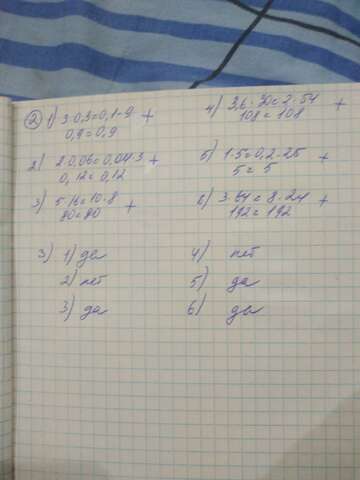 ② 1) 3·0,3=0,1·9 +
0,9=0,9
2) 2·0,06=0,04·3 +
0,12=0,12
3) 5·16=10·8
80=80 +
4) 3,6·30=2·54 +
108=108
5) 1·5=0,2·25 +
5=5
6) 3·64=8·24 +
192=192
3) 1) да
2) нет
3) да
4) нет
5) да
6) да